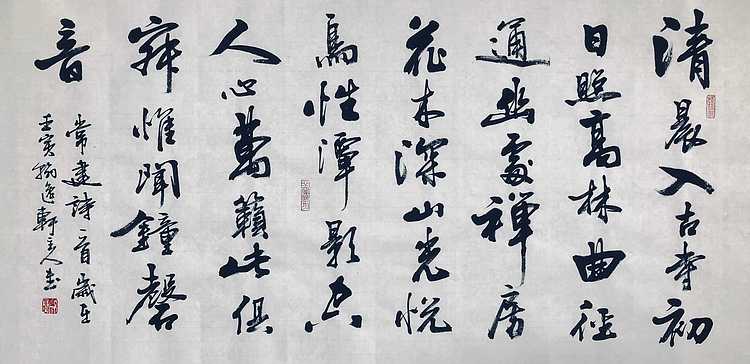 清晨入古寺初
日照高林曲徑
通幽處禪房
花木深山光悦
鳥性潭影空
人心萬籟此俱
寂惟聞鐘磬
音
常建詩一首歲在
壬寅逸軒主人書